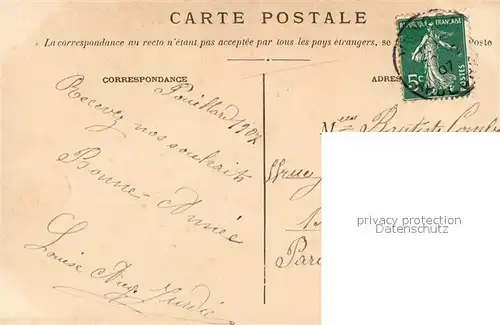 CARTE POSTALE
La correspondance au recto n'étant pas acceptée par tous les pays étrangers, se Poste
CORRESPONDANCE
ADRES
FRANÇAISE
5c
POSTES
07
Recevez nos souhaits
Bonne Année
Louise Aug.
M
Baptiste
Par
privacy protection
Datenschutz